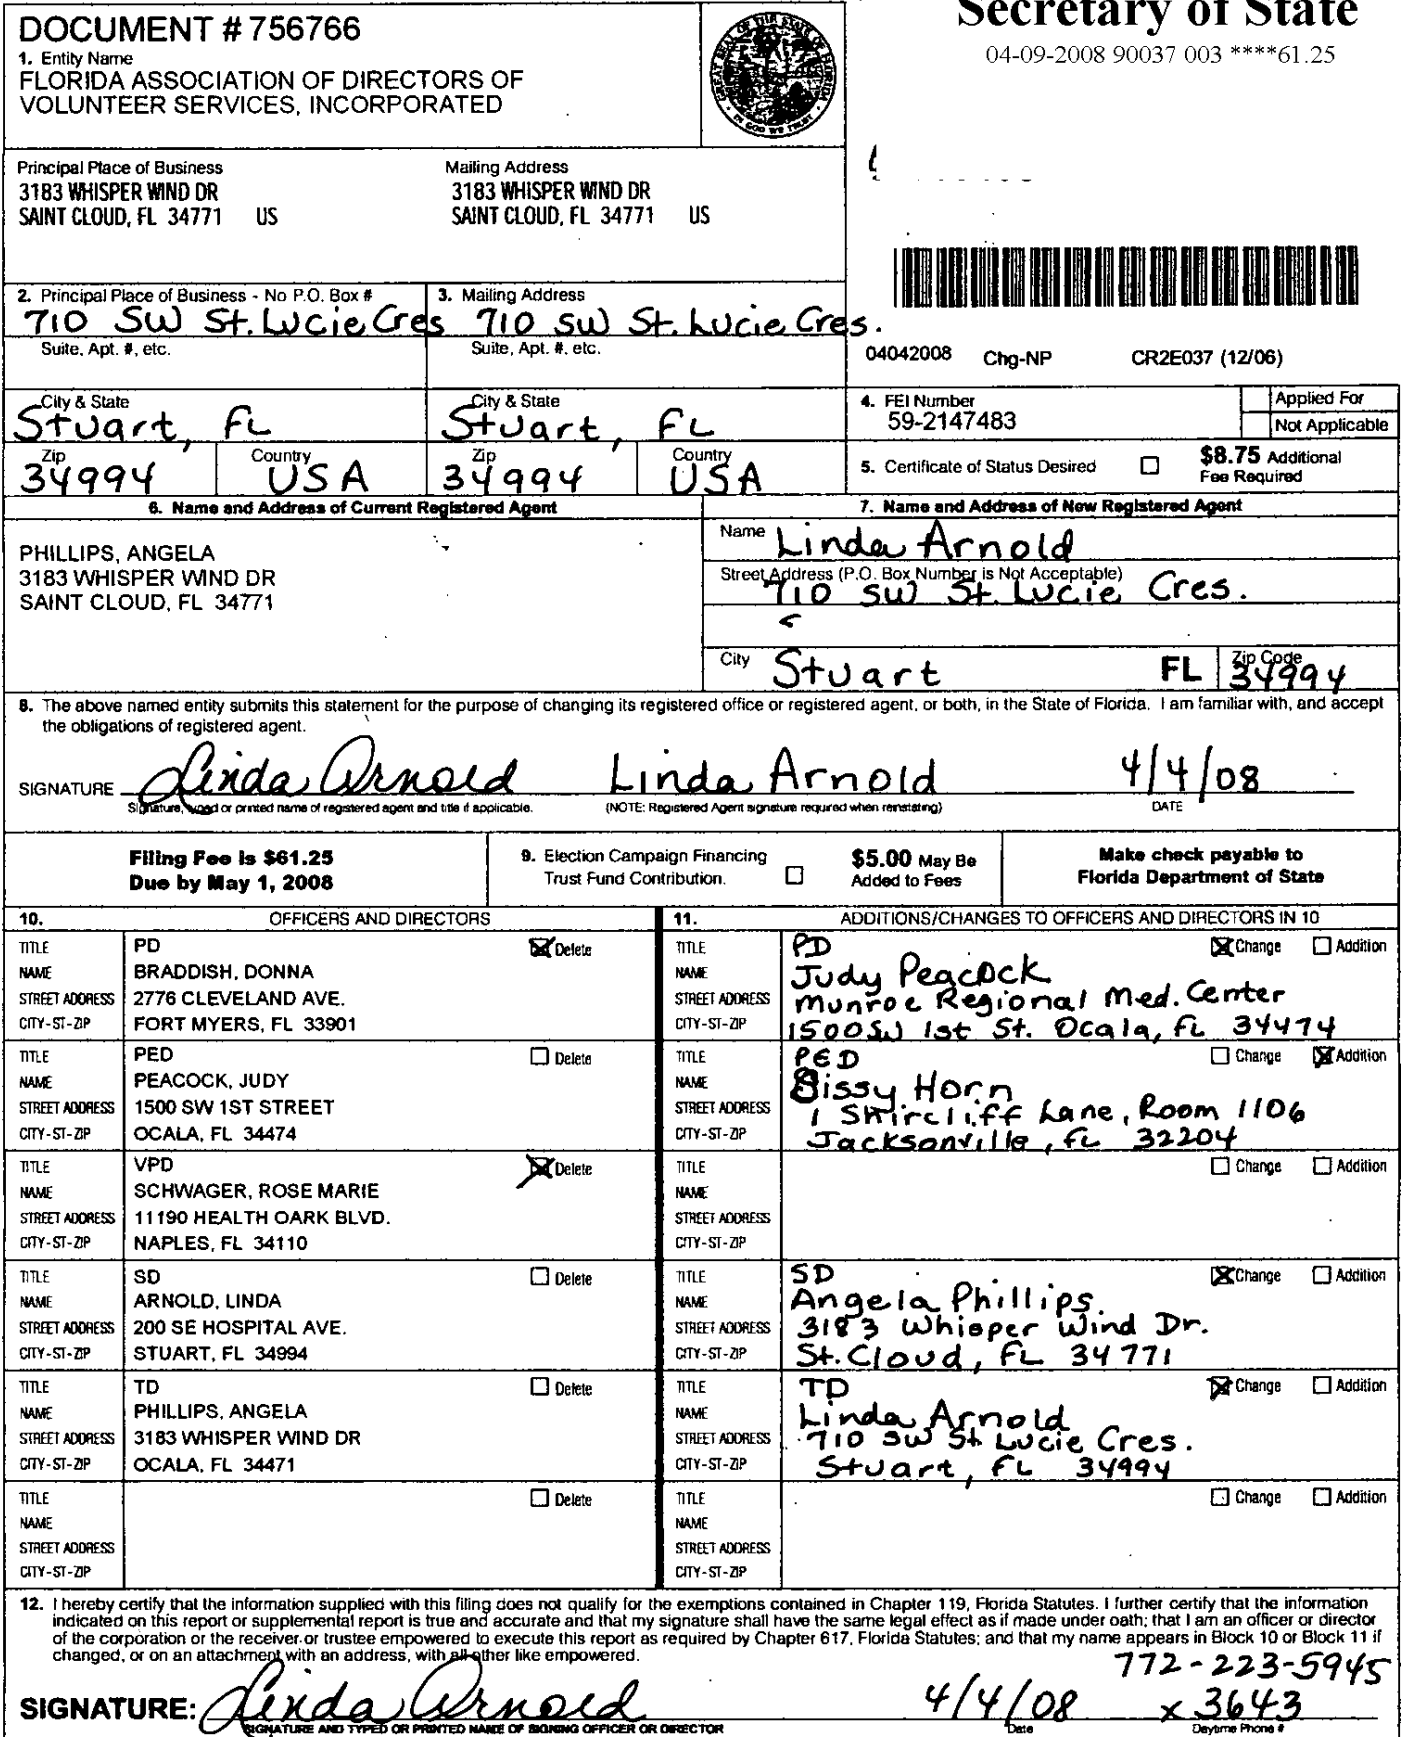 Secretary of State
04-09-2008 90037 003 ****61.25
DOCUMENT # 756766
1. Entity Name
FLORIDA ASSOCIATION OF DIRECTORS OF
VOLUNTEER SERVICES, INCORPORATED
GREAT SEAL OF THE STATE OF FLORIDA
IN GOD WE TRUST
Principal Place of Business
3183 WHISPER WIND DR
SAINT CLOUD, FL 34771 US
Mailing Address
3183 WHISPER WIND DR
SAINT CLOUD, FL 34771 US
2. Principal Place of Business - No P.O. Box #
710 SW St. Lucie Cres
Suite, Apt. #, etc.
City & State
Stuart, FL
Zip
34994
Country
USA
3. Mailing Address
710 SW St. Lucie Cres.
Suite, Apt. #, etc.
City & State
Stuart, FL
Zip
34994
Country
USA
04042008 Chg-NP CR2E037 (12/06)
4. FEI Number
59-2147483
Applied For
Not Applicable
5. Certificate of Status Desired
$8.75 Additional
Fee Required
6. Name and Address of Current Registered Agent
PHILLIPS, ANGELA
3183 WHISPER WIND DR
SAINT CLOUD, FL 34771
7. Name and Address of New Registered Agent
Name Linda Arnold
Street Address (P.O. Box Number is Not Acceptable)
710 SW St. Lucie Cres.
City Stuart FL Zip Code 34994
8. The above named entity submits this statement for the purpose of changing its registered office or registered agent, or both, in the State of Florida. I am familiar with, and accept
the obligations of registered agent.
SIGNATURE Linda Arnold Linda Arnold 4/4/08
Signature, typed or printed name of registered agent and title if applicable. (NOTE: Registered Agent signature required when reinstating) DATE
Filing Fee is $61.25
Due by May 1, 2008
9. Election Campaign Financing
Trust Fund Contribution.
$5.00 May Be
Added to Fees
Make check payable to
Florida Department of State
10. OFFICERS AND DIRECTORS
TITLE PD Delete
NAME BRADDISH, DONNA
STREET ADDRESS 2776 CLEVELAND AVE.
CITY-ST-ZIP FORT MYERS, FL 33901
TITLE PED Delete
NAME PEACOCK, JUDY
STREET ADDRESS 1500 SW 1ST STREET
CITY-ST-ZIP OCALA, FL 34474
TITLE VPD Delete
NAME SCHWAGER, ROSE MARIE
STREET ADDRESS 11190 HEALTH OARK BLVD.
CITY-ST-ZIP NAPLES, FL 34110
TITLE SD Delete
NAME ARNOLD, LINDA
STREET ADDRESS 200 SE HOSPITAL AVE.
CITY-ST-ZIP STUART, FL 34994
TITLE TD Delete
NAME PHILLIPS, ANGELA
STREET ADDRESS 3183 WHISPER WIND DR
CITY-ST-ZIP OCALA, FL 34471
TITLE Delete
NAME
STREET ADDRESS
CITY-ST-ZIP
11. ADDITIONS/CHANGES TO OFFICERS AND DIRECTORS IN 10
TITLE PD Change Addition
NAME Judy Peacock
STREET ADDRESS Munroe Regional Med. Center
CITY-ST-ZIP 1500 SW 1st St. Ocala, FL 34474
TITLE PED Change Addition
NAME Sissy Horn
STREET ADDRESS 1 Shircliff Lane, Room 1106
CITY-ST-ZIP Jacksonville, FL 32204
TITLE Change Addition
NAME
STREET ADDRESS
CITY-ST-ZIP
TITLE SD Change Addition
NAME Angela Phillips
STREET ADDRESS 3183 Whisper Wind Dr.
CITY-ST-ZIP St. Cloud, FL 34771
TITLE TD Change Addition
NAME Linda Arnold
STREET ADDRESS 710 SW St Lucie Cres.
CITY-ST-ZIP Stuart, FL 34994
TITLE Change Addition
NAME
STREET ADDRESS
CITY-ST-ZIP
12. I hereby certify that the information supplied with this filing does not qualify for the exemptions contained in Chapter 119, Florida Statutes. I further certify that the information
indicated on this report or supplemental report is true and accurate and that my signature shall have the same legal effect as if made under oath; that I am an officer or director
of the corporation or the receiver or trustee empowered to execute this report as required by Chapter 617, Florida Statutes; and that my name appears in Block 10 or Block 11 if
changed, or on an attachment with an address, with all other like empowered.
772-223-5945
SIGNATURE: Linda Arnold 4/4/08 x 3643
SIGNATURE AND TYPED OR PRINTED NAME OF SIGNING OFFICER OR DIRECTOR Date Daytime Phone #